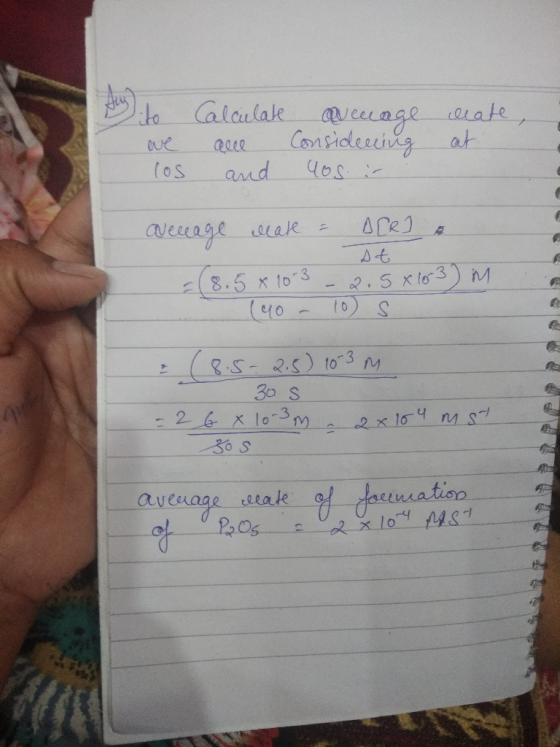 Ans) to Calculate average rate,
we are Considering at
10s and 40s :-
average rate = Δ[R]
Δt
= (8.5 × 10⁻³ - 2.5 × 10⁻³) M
(40 - 10) S
= (8.5 - 2.5) 10⁻³ M
30 S
= 2 6 × 10⁻³ M = 2 × 10⁻⁴ M S⁻¹
30 S
average rate of formation
of P₂O₅ = 2 × 10⁻⁴ M S⁻¹